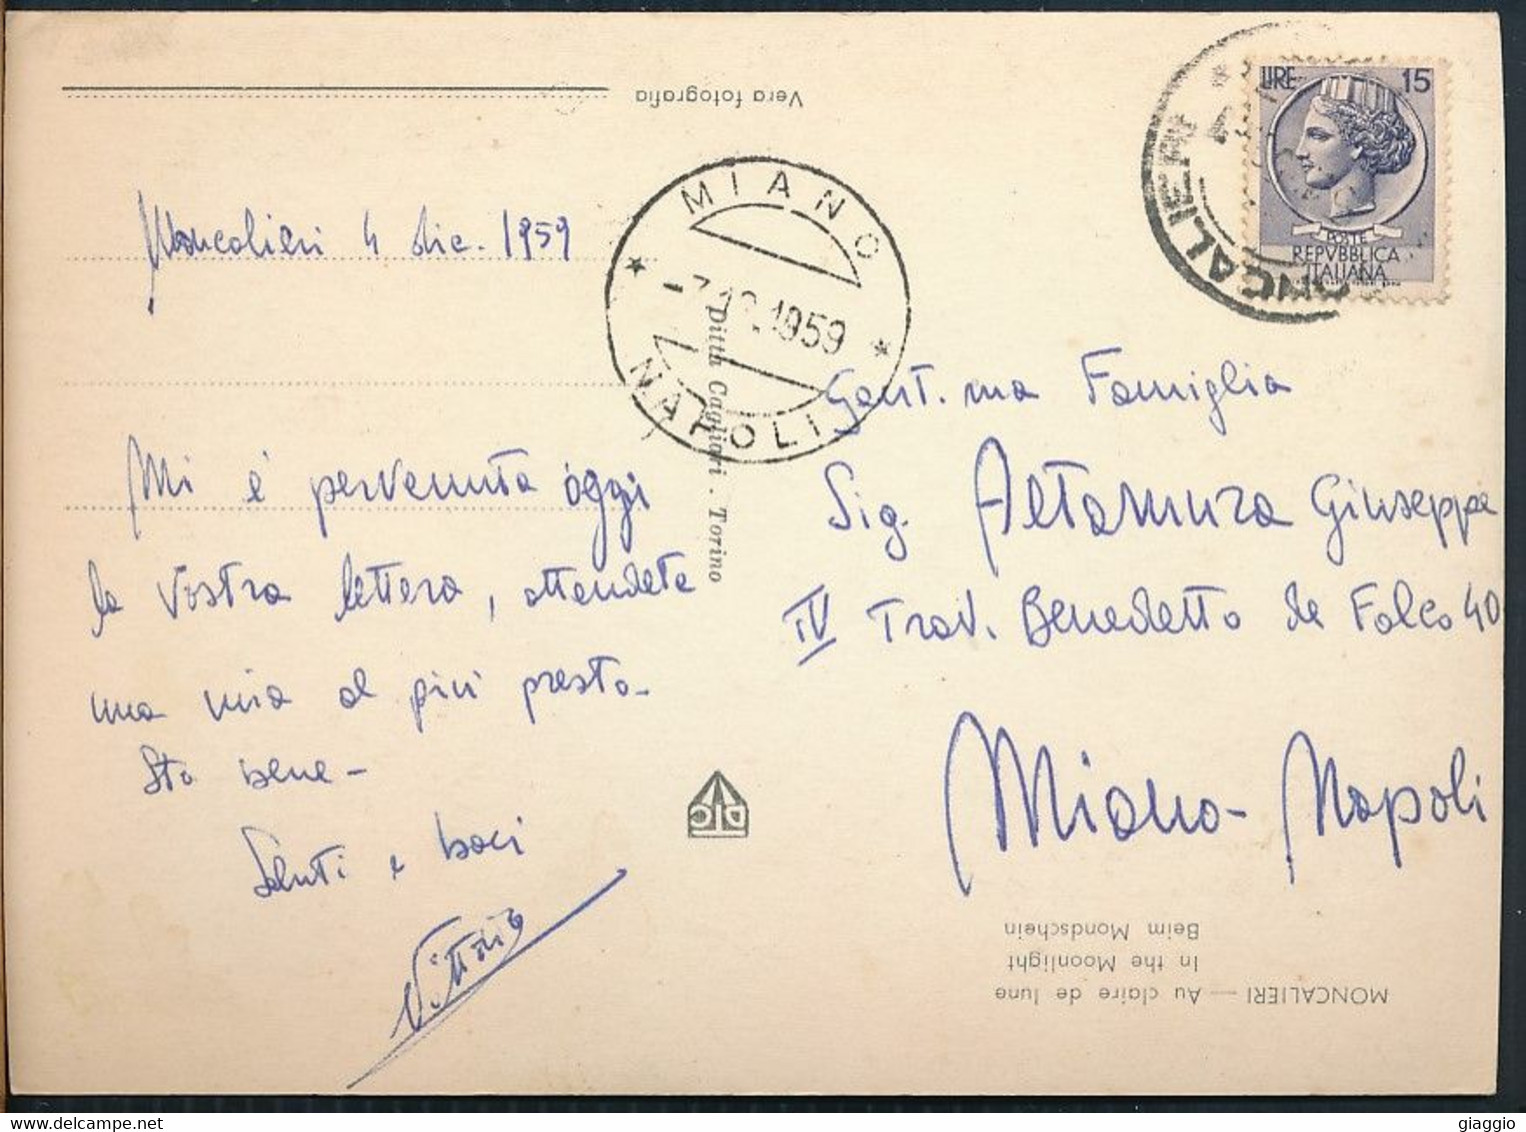 Vera fotografia
LIRE 15
POSTE
REPVBBLICA
ITALIANA
MONCALIERI
MIANO
7.12.1959
NAPOLI
Moncalieri 4 dic. 1959
Mi è pervenuta oggi
la vostra lettera, attendete
una mia al più presto.
Sto bene -
Saluti e baci
Vittorio
Gent.ma Famiglia
Sig. Altamura Giuseppe
IV Trav. Benedetto de Falco 40
Miano - Napoli
Ditta Cagliari . Torino
DIC
MONCALIERI — Au claire de lune
In the Moonlight
Beim Mondschein
© delcampe.net
giaggio